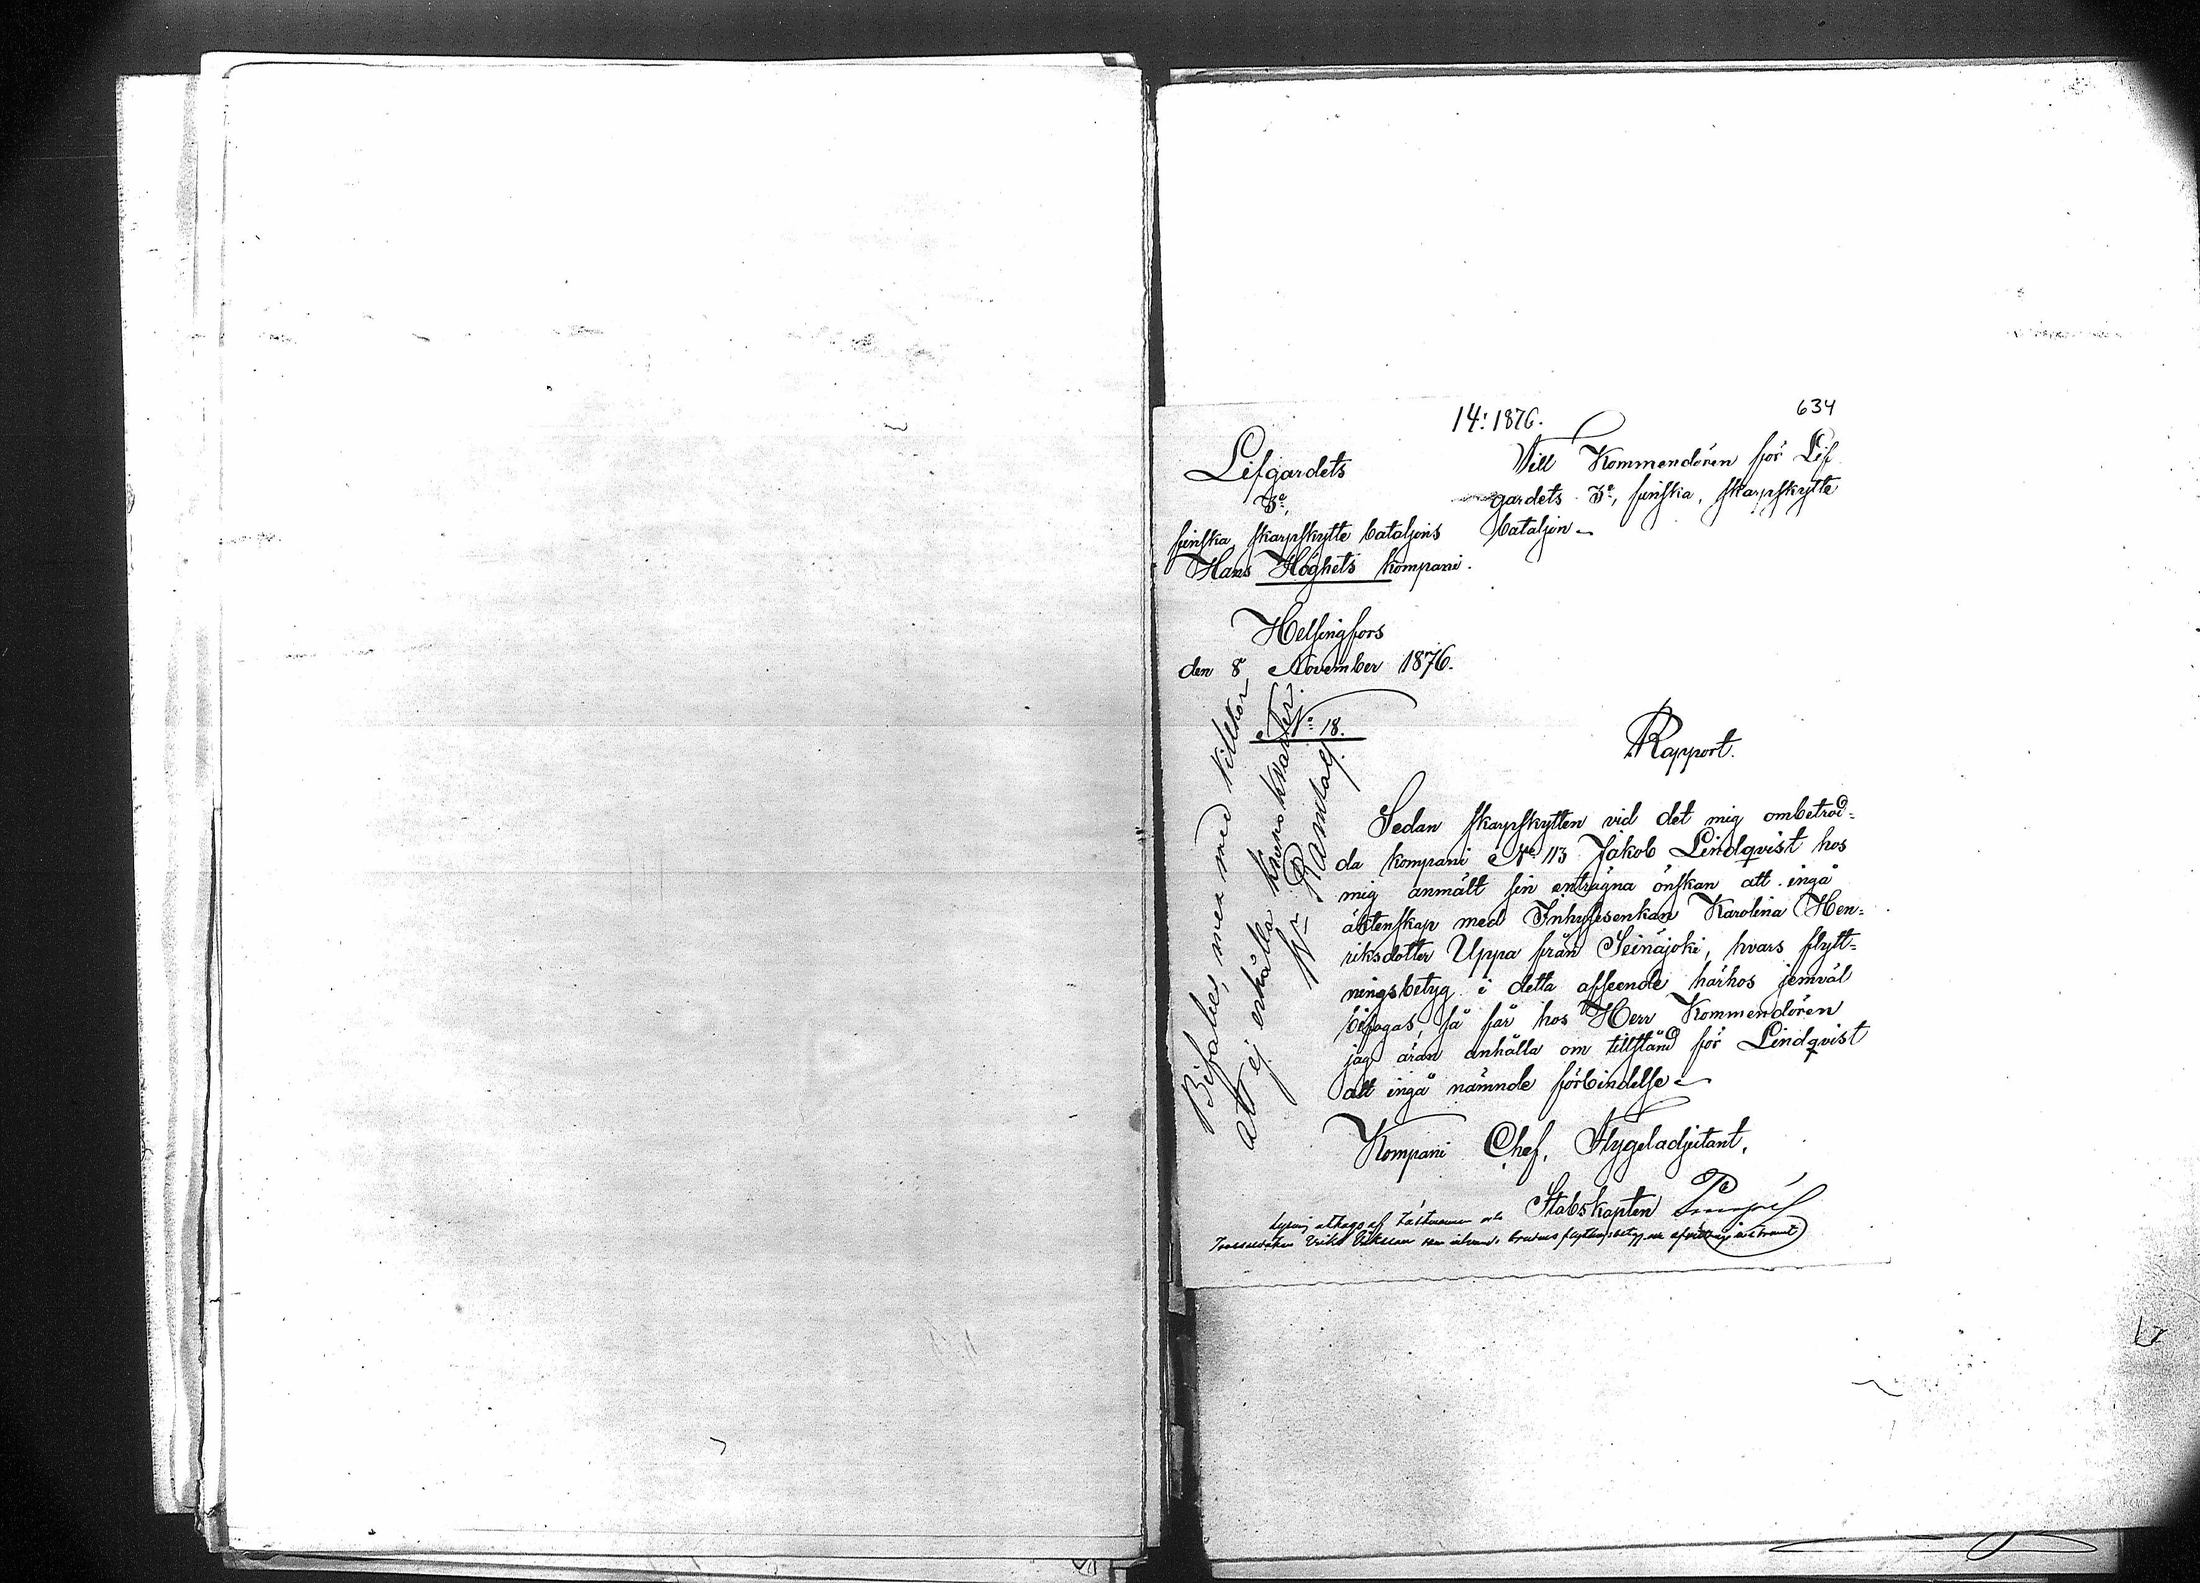 14: 1876.
634
Lifgardets
3e,
finska skarpskytte bataljons
Hans Höghets kompani.
Till Kommendören för Lif
gardets 3e, finska, skarpskytte
bataljon
Helsingfors
den 8 November 1876.
No 18.
Rapport.
Sedan skarpskytten vid det mig ombetrod-
da kompani No 113 Jakob Lindqvist hos
mig anmält sin enträgna önskan att ingå
äktenskap med Inhysesenkan Karolina Hen-
riksdotter Uppa från Seinäjoki, hvars flytt-
ningsbetyg i detta afseende härhos jemväl
bifogas, så får hos Herr Kommendören
jag äran anhålla om tillstånd för Lindqvist
att ingå nämnde förbindelse
Kompani Chef, Flygeladjutant,
Stabskapten
Lysning uttages af
Bifalles, men med villkor
att ej erhålla kronokvarter.
Ramsay.